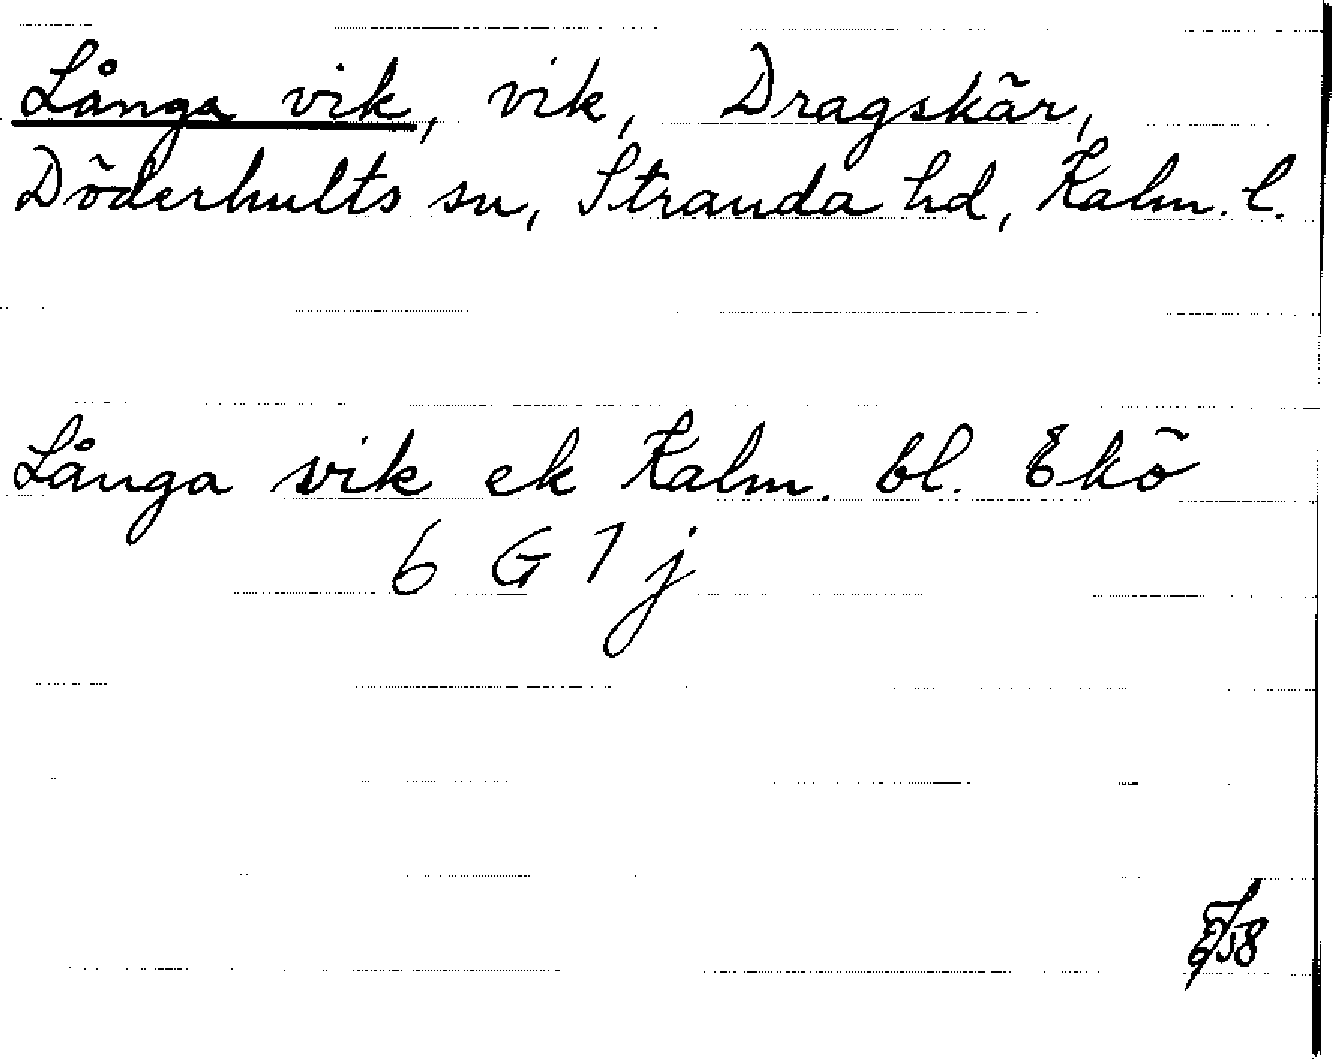 Långa vik, vik, Dragskär,
Döderhults sn, Stranda hd, Kalm. l.
Långa vik ek Kalm. bl. Ekö
6 G 1 j